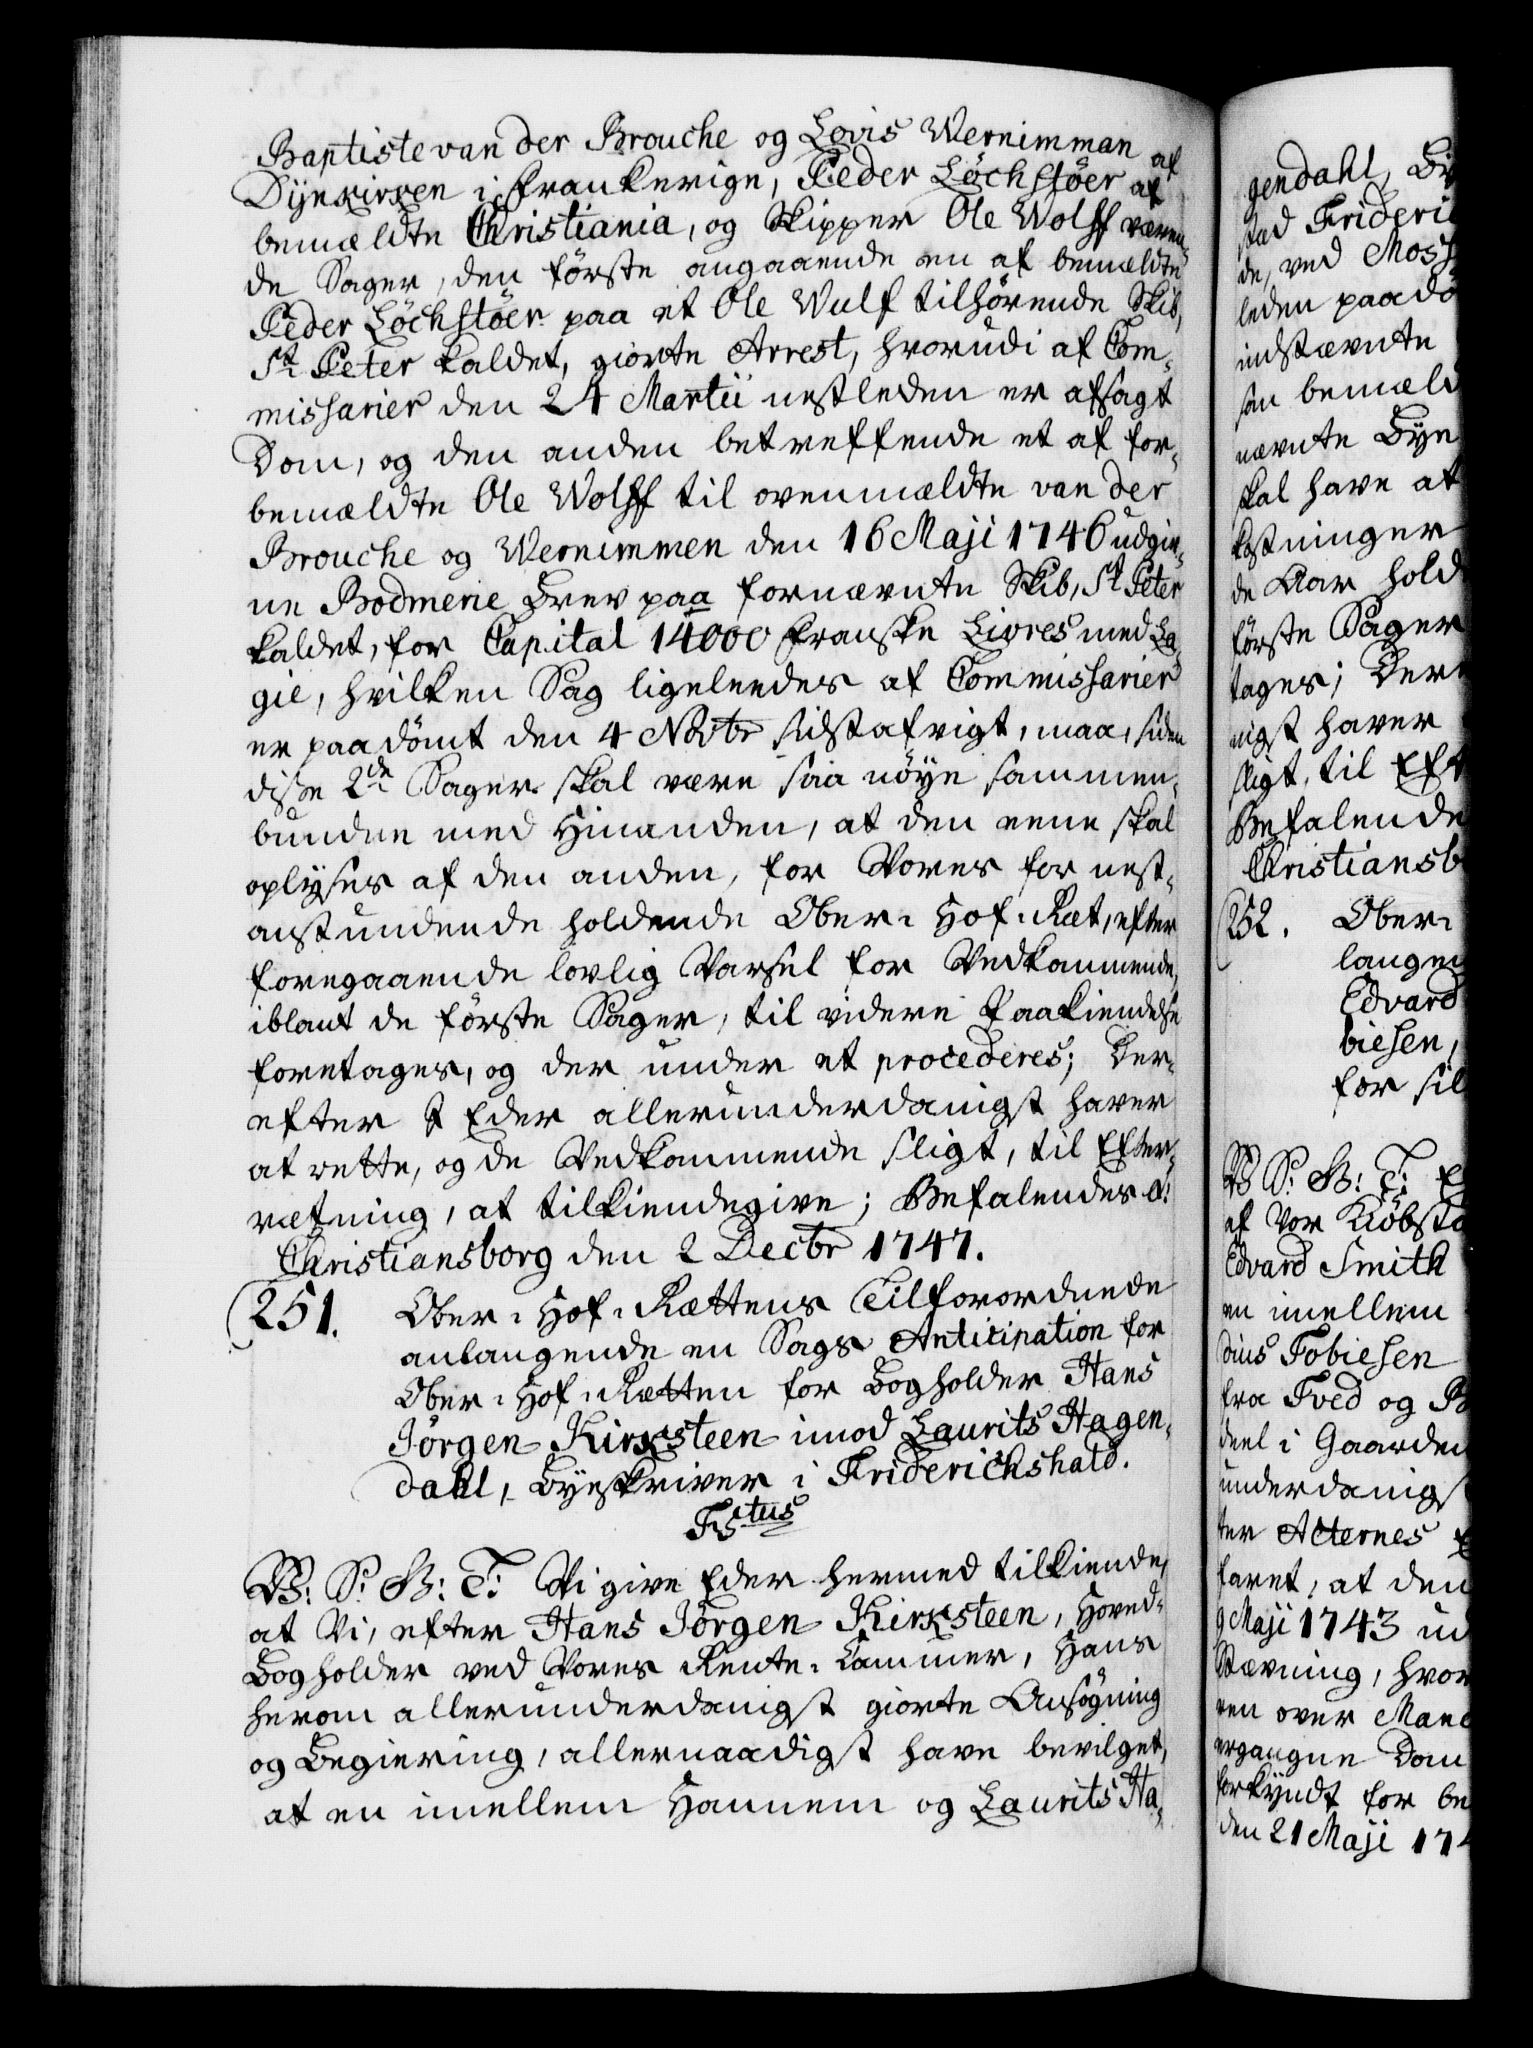 Baptiste van der Brouche og Lovis Wernimman af
Dynkirken i Frankerige, Peder Löchstöer af
bemældte Christiania, og Skipper Ole Wolff væren¬
de Sager, den förste angaaende en af bemældte
Peder Löchstöer paa et Ole Wulf tilhörende Skib,
St Peter kaldet, giorte Arrest, hvorudi af Com¬
missarier den 24 Martii nestleden er afsagt
Dom, og den anden betreffende et af for¬
bemældte Ole Wolff til ovenmældte van der
Brouche og Wernimmen den 16 Maji 1746 udgiv¬
ne Bodmerie Brev paa fornævnte Skib, St Peter
kaldet, for Capital 14000 franske Livres med La¬
gie, hvilken Sag ligeleedes af Commissarier
er paadömt den 4 Novbr sidstafvigt, maa, siden
disse 2de Sager skal være saa nöye sammen¬
bundne med Hinanden, at den eene skal
oplyses af den anden, for Vores for nest¬
anstundende holdende Ober-Hof-Ræt, efter
foregaaende lovlig Varsel for Vedkommende,
iblant de förste Sager, til videre Paakiendelse
foretages, og der under et procederes; Der¬
efter I Eder allerunderdanigst haver
at rette, og de Vedkommende sligt, til Efter¬
rætning, at tilkiendegive; Befalendes a:
Christiansborg den 2 Decbr 1747.
251. Ober-Hof-Rættens Tilforordnede
anlangende en Sags Anticipation for
Ober-Hof-Rætten for Bogholder Hans
Jörgen Kirksteen imod Laurits Hagen¬
dahl, Byeskriver i Friderichshald.
Fstus
W: S: G: T: Vi give Eder hermed tilkiende,
at Vi, efter Hans Jörgen Kirksteen, Hoved¬
Bogholder ved Vores Rente-Cammer, Hans
herom allerunderdanigst giorte Ansögning
og Begiering, allernaadigst have bevilget,
at en imellem Hannem og Laurits Ha¬
gendahl, By
stad Frideri
de, ved Moss
leden paadö
indstævnte
san bemæld
nævnte Bye
skal have at
kostninger
de Aar hold
förste Sager
tages; Der
nigst haver
sligt, til Eft
Befalende
Christiansb
252. Ober-
langen
Edvard
biesen,
for sil
W S: G: T:
af Vor Kiöbsta
Edvard Smith
en imellem
dius Tobiesen
fra Tved og B
deel i Gaarden
underdanigs
ter Acternes
faret, at den
9 Maji 1743 ud
Stævning, hvor
ren over Mand
ergangne Dom
forkyndt for be
den 21 Maji 174